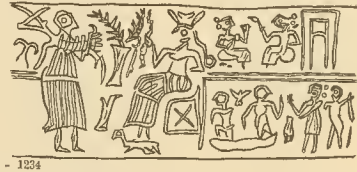 - 1234